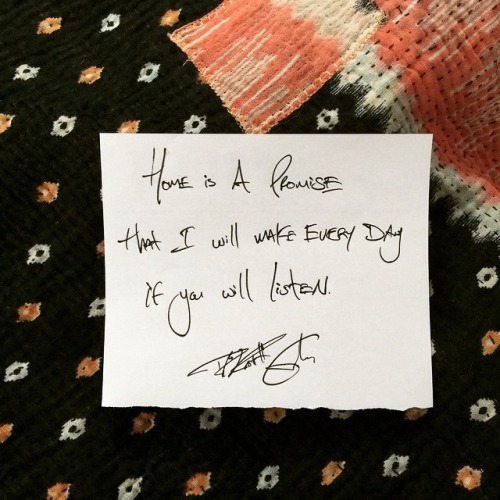 Home is A Promise
that I will make Every Day
if you will listen.